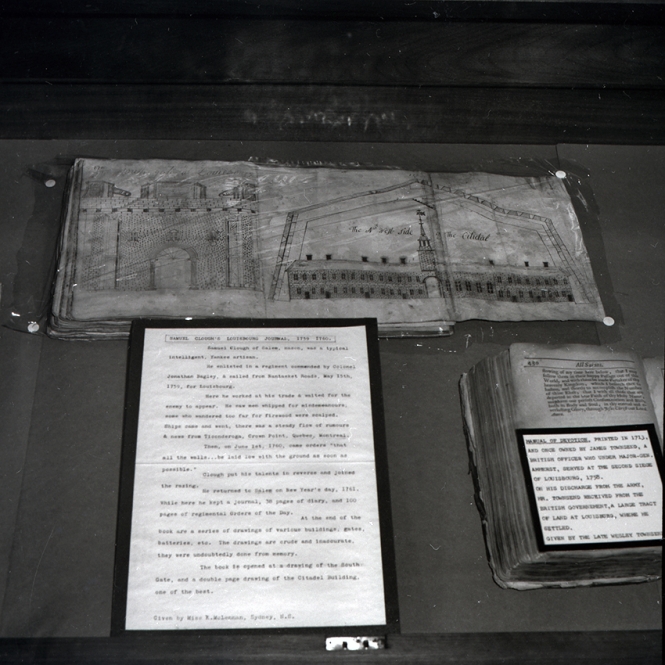 The Nd E. Side
The Citidal
SAMUEL CLOUGH'S LOUISBOURG JOURNAL, 1759 1760.
Samuel Klough of Salem, was a typical
intelligent, Yankee artisan.
He enlisted in a regiment commanded by Colonel
Jonathan Bagley, & sailed from Nantasket Roads, May 15th,
for Louisbourg.
Here he worked at his trade & waited for the
enemy to appear. He saw men whipped for misdemeanours;
some who wandered too far for firewood were scalped.
Ships came and went, there was a steady flow of rumours
& news from Ticonderoga, Crown Point, Quebec, Montreal.
Then, on June 1st, 1760, came orders "that
all the walls...be laid low with the ground as soon as
possible."
Clough put his talents in reverse and joined
the razing.
He returned to Salem on New Year's day, 1761.
While here he kept a journal, 38 pages of diary, and 100
pages of regimental Orders of the Day.
At the end of the
book are a series of drawings of various buildings, gates,
batteries, etc. The drawings are crude and inaccurate,
they were undoubtedly done from memory.
The book is opened at a drawing of the South
Gate, and a double page drawing of the Citadel Building,
one of the best.
Given by Miss K.McLennan, Sydney, N.S.
MANUAL OF DEVOTION, PRINTED IN 1713,
AND ONCE OWNED BY JAMES TOWNSEND, A
BRITISH OFFICER WHO UNDER MAJOR-GEN.
AMHERST, SERVED AT THE SECOND SIEGE
OF LOUISBURG, 1758.
ON HIS DISCHARGE FROM THE ARMY,
MR. TOWNSEND RECEIVED FROM THE
BRITISH GOVERNMENT, A LARGE TRACT
OF LAND AT LOUISBURG, WHERE HE
SETTLED.
GIVEN BY THE LATE WESLEY TOWNSEND